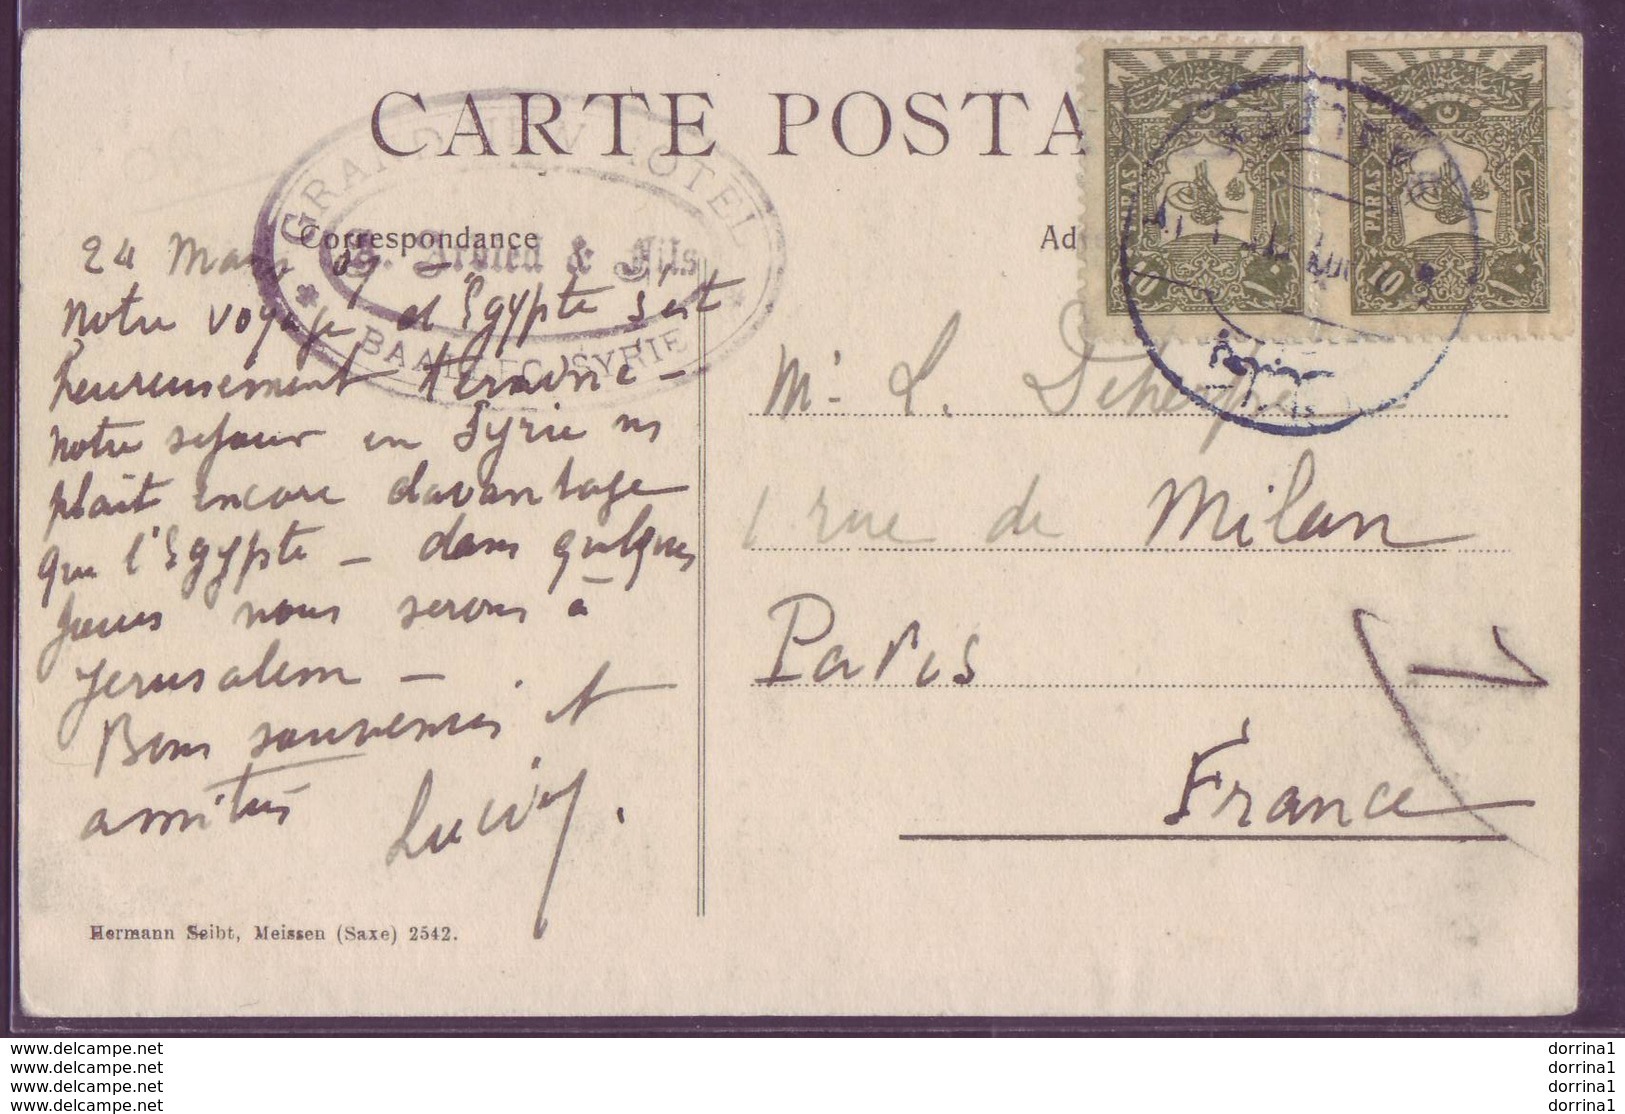 CARTE POSTA
GRAND NEW HOTEL
Arbied & Fils
BAALBEC SYRIE
Correspondance
24 Mars 07
Notre voyage d'Egypte s'est
heureusement terminé -
notre séjour en Syrie ns
plait encore davantage
que l'Egypte - dans quelques
jours nous serons à
Jerusalem -
Bons souvenirs et
amitiés
Hermann Seibt, Meissen (Saxe) 2542.
PARAS
10
١٠
PARAS
10
١٠
Mr L.
1 rue de Milan
Paris
France
www.delcampe.net
www.delcampe.net
www.delcampe.net
www.delcampe.net
dorrina1
dorrina1
dorrina1
dorrina1